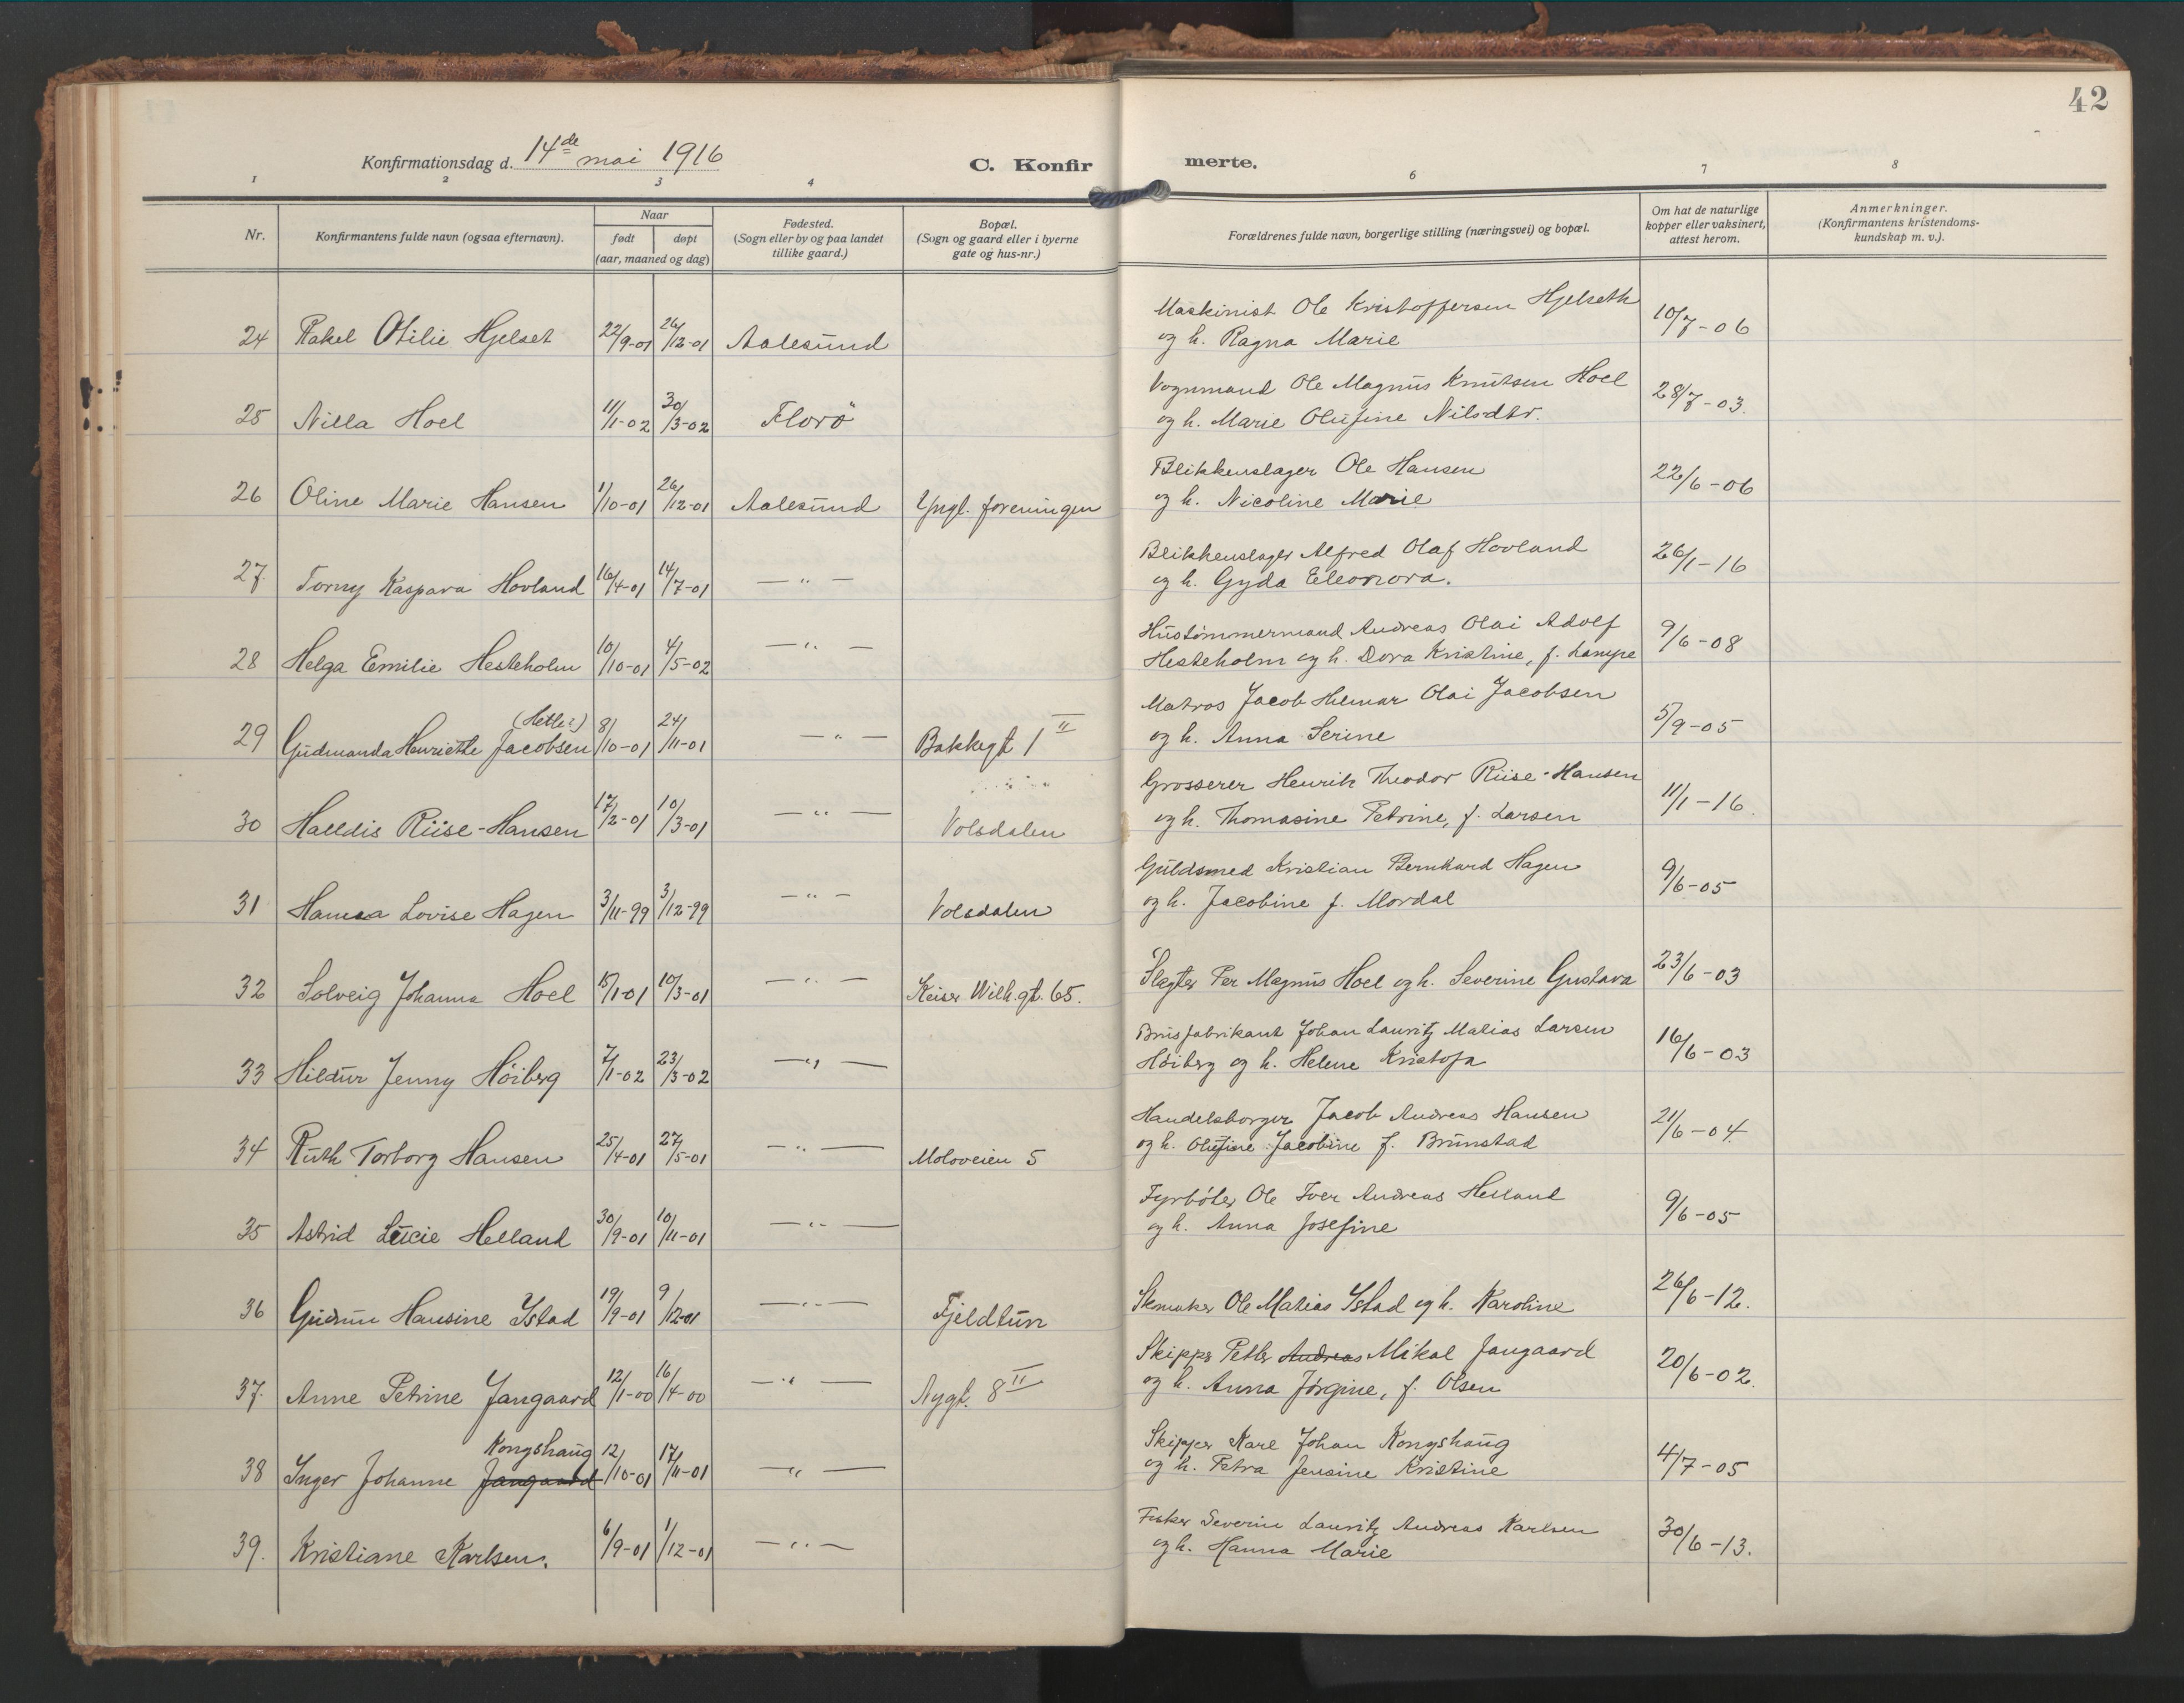 42
Konfirmationsdag d. 14de mai 1916
C. Konfirmerte.
1 2 3 4 6 7 8
Nr.
Konfirmantens fulde navn (ogsaa efternavn).
Naar
født døpt
(aar, maaned og dag)
Fødested.
(Sogn eller by og paa landet
tillike gaard.)
Bopæl.
(Sogn og gaard eller i byerne
gate og hus-nr.)
Forældrenes fulde navn, borgerlige stilling (næringsvei) og bopæl.
Om hat de naturlige
kopper eller vaksinert,
attest herom.
Anmerkninger.
(Konfirmantens kristendoms-
kundskap m. v.).
24 Rakel Otilie Hjelset 22/9-01 26/12-01 Aalesund
Maskinist Ole Kristoffersen Hjelseth
og h. Ragna Marie 10/7-06
25 Nilla Hoel 11/1-02 30/3-02 Florö
Vognmand Ole Magnus Knutsen Hoel
og h. Marie Olufine Nilsdtr. 28/7-03.
26 Oline Marie Hansen 1/10-01 26/12-01 Aalesund Yngl. foreningen
Blikkenslager Ole Hansen
og h. Nicoline Marie 22/6-06
27. Torny Kaspara Hovland 16/4-01 14/7-01 — " —
Blikkenslager Alfred Olaf Hovland
og h. Gyda Eleonora. 26/1-16
28 Helga Emilie Hesteholm 10/10-01 4/5-02 — " —
Hustømmermand Andreas Olai Adolf
Hesteholm og h. Dora Kristine, f. Lampe 9/6-08
(Hetle?)
29 Gudmanda Henriette Jacobsen 8/10-01 24/11-01 — " — Bakkegt 1 II
Matros Jacob Hilmar Olai Jacobsen
og h. Anna Serine 5/9-05
30 Halldis Riise-Hansen 17/2-01 10/3-01 — " — Volsdalen
Grosserer Henrik Theodor Riise-Hansen
og h. Thomasine Petrine, f. Larsen 11/1-16.
31 Hanna Lovise Hagen 3/11-99 3/12-99 — " — Volsdalen
Guldsmed Kristian Bernhard Hagen
og h. Jacobine f. Mordal 9/6-05
32 Solveig Johanna Hoel 15/1-01 10/3-01 — " — Keiser Wilh.gt. 65.
Slagter Per Magnus Hoel og h. Severine Gustava 23/6-03
33 Hildur Jenny Höiberg 7/1-02 23/3-02 — " —
Brusfabrikant Johan Lauritz Matias Larsen
Höiberg og h. Helene Kristofa 16/6-03
34 Ruth Torborg Hansen 25/4-01 27/5-01 — " — Moloveien 5
Handelsborger Jacob Andreas Hansen
og h. Olufine Jacobine f. Brunstad 21/6-04
35 Astrid Lucie Helland 30/9-01 10/11-01 — " —
Fyrböter Ole Iver Andreas Helland
og h. Anna Josefine 9/6-05
36 Gudrun Hansine Ystad 19/9-01 9/12-01 — " — Fjeldtun
Skomaker Ole Matias Ystad og h. Karoline 26/6-12.
37. Anne Petrine Jangaard 12/1-00 16/4-00 — " — Nygt. 8 II
Skipper Petter Andreas Mikal Jangaard
og h. Anna Jørgine, f. Olsen 20/6-02.
Kongshaug
38 Inger Johanne Jangaard 12/10-01 17/11-01 — " —
Skipper Karl Johan Kongshaug
og h. Petra Jensine Kristine 4/7-05
39. Kristiane Karlsen. 6/9-01 1/12-01 — " —
Fisker Severin Lauritz Andreas Karlsen
og h. Hanna Marie 30/6-13.